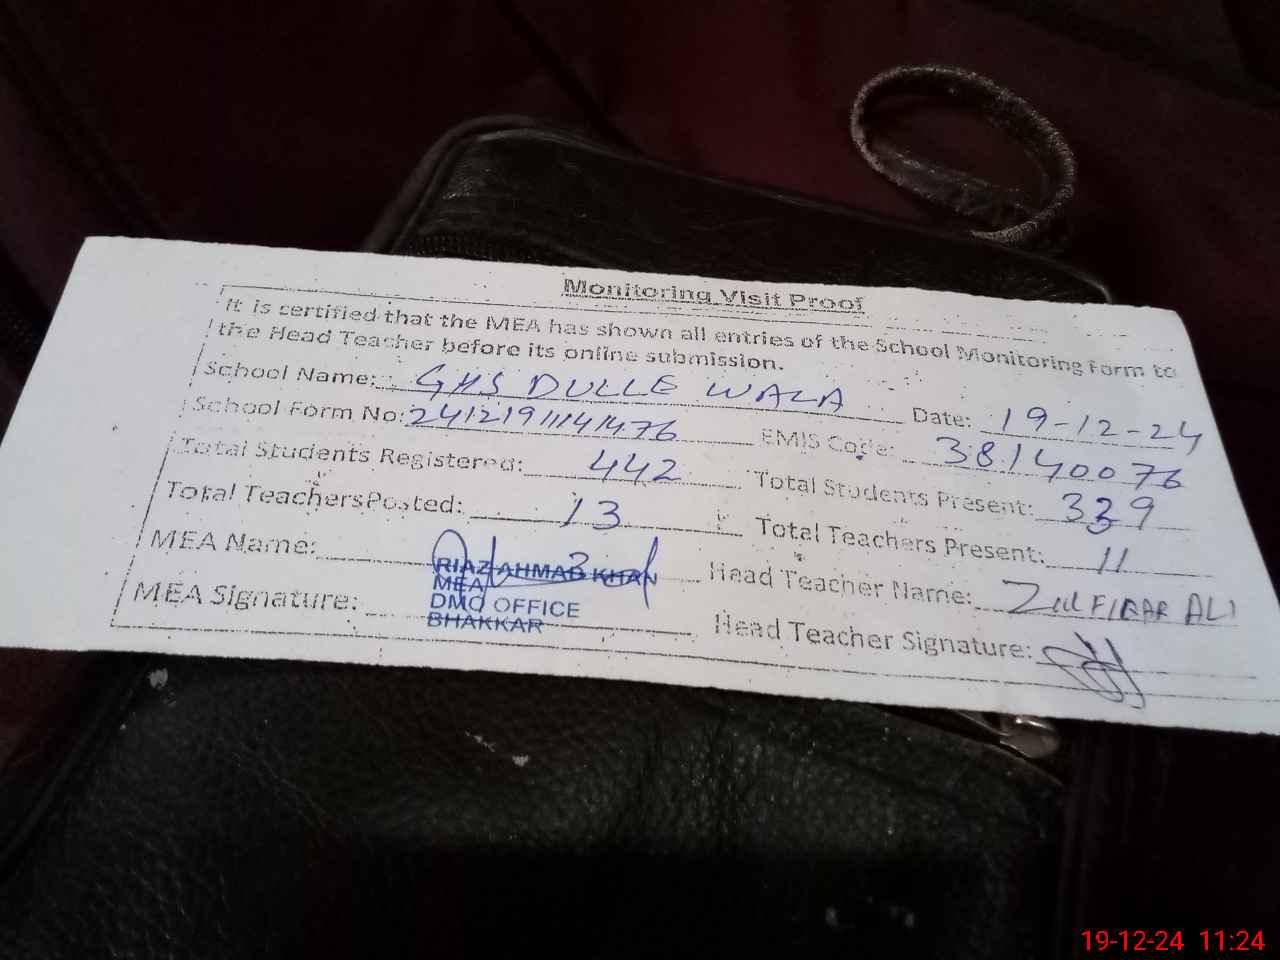 Monitoring Visit Proof
It is certified that the MEA has shown all entries of the School Monitoring Form to
the Head Teacher before its online submission.
School Name: GHS DULLE WALA Date: 19-12-24
School Form No: 24121911141476 EMIS Code: 38140076
Total Students Registered: 442 Total Students Present: 339
Total Teachers Posted: 13 Total Teachers Present: 11
MEA Name: RIAZ AHMAD KHAN Head Teacher Name: ZULFIQAR ALI
MEA
MEA Signature: DMO OFFICE Head Teacher Signature:
BHAKKAR
19-12-24 11:24